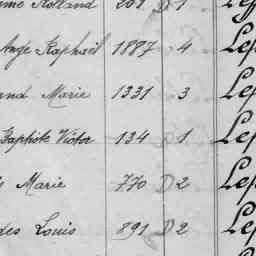 Rolland 201 D 1
Ange Raphaël 1887 4 Lep
Marie 1331 3 Lep
Baptiste Victor 134 1 Lep
Marie 770 D 2 Lep
Louis 891 D 2 Lep